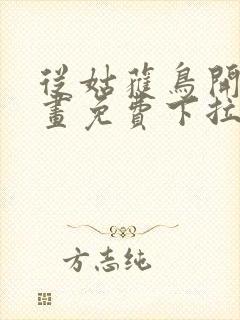 從姑獲鳥開
畫免費下拉
方志纯